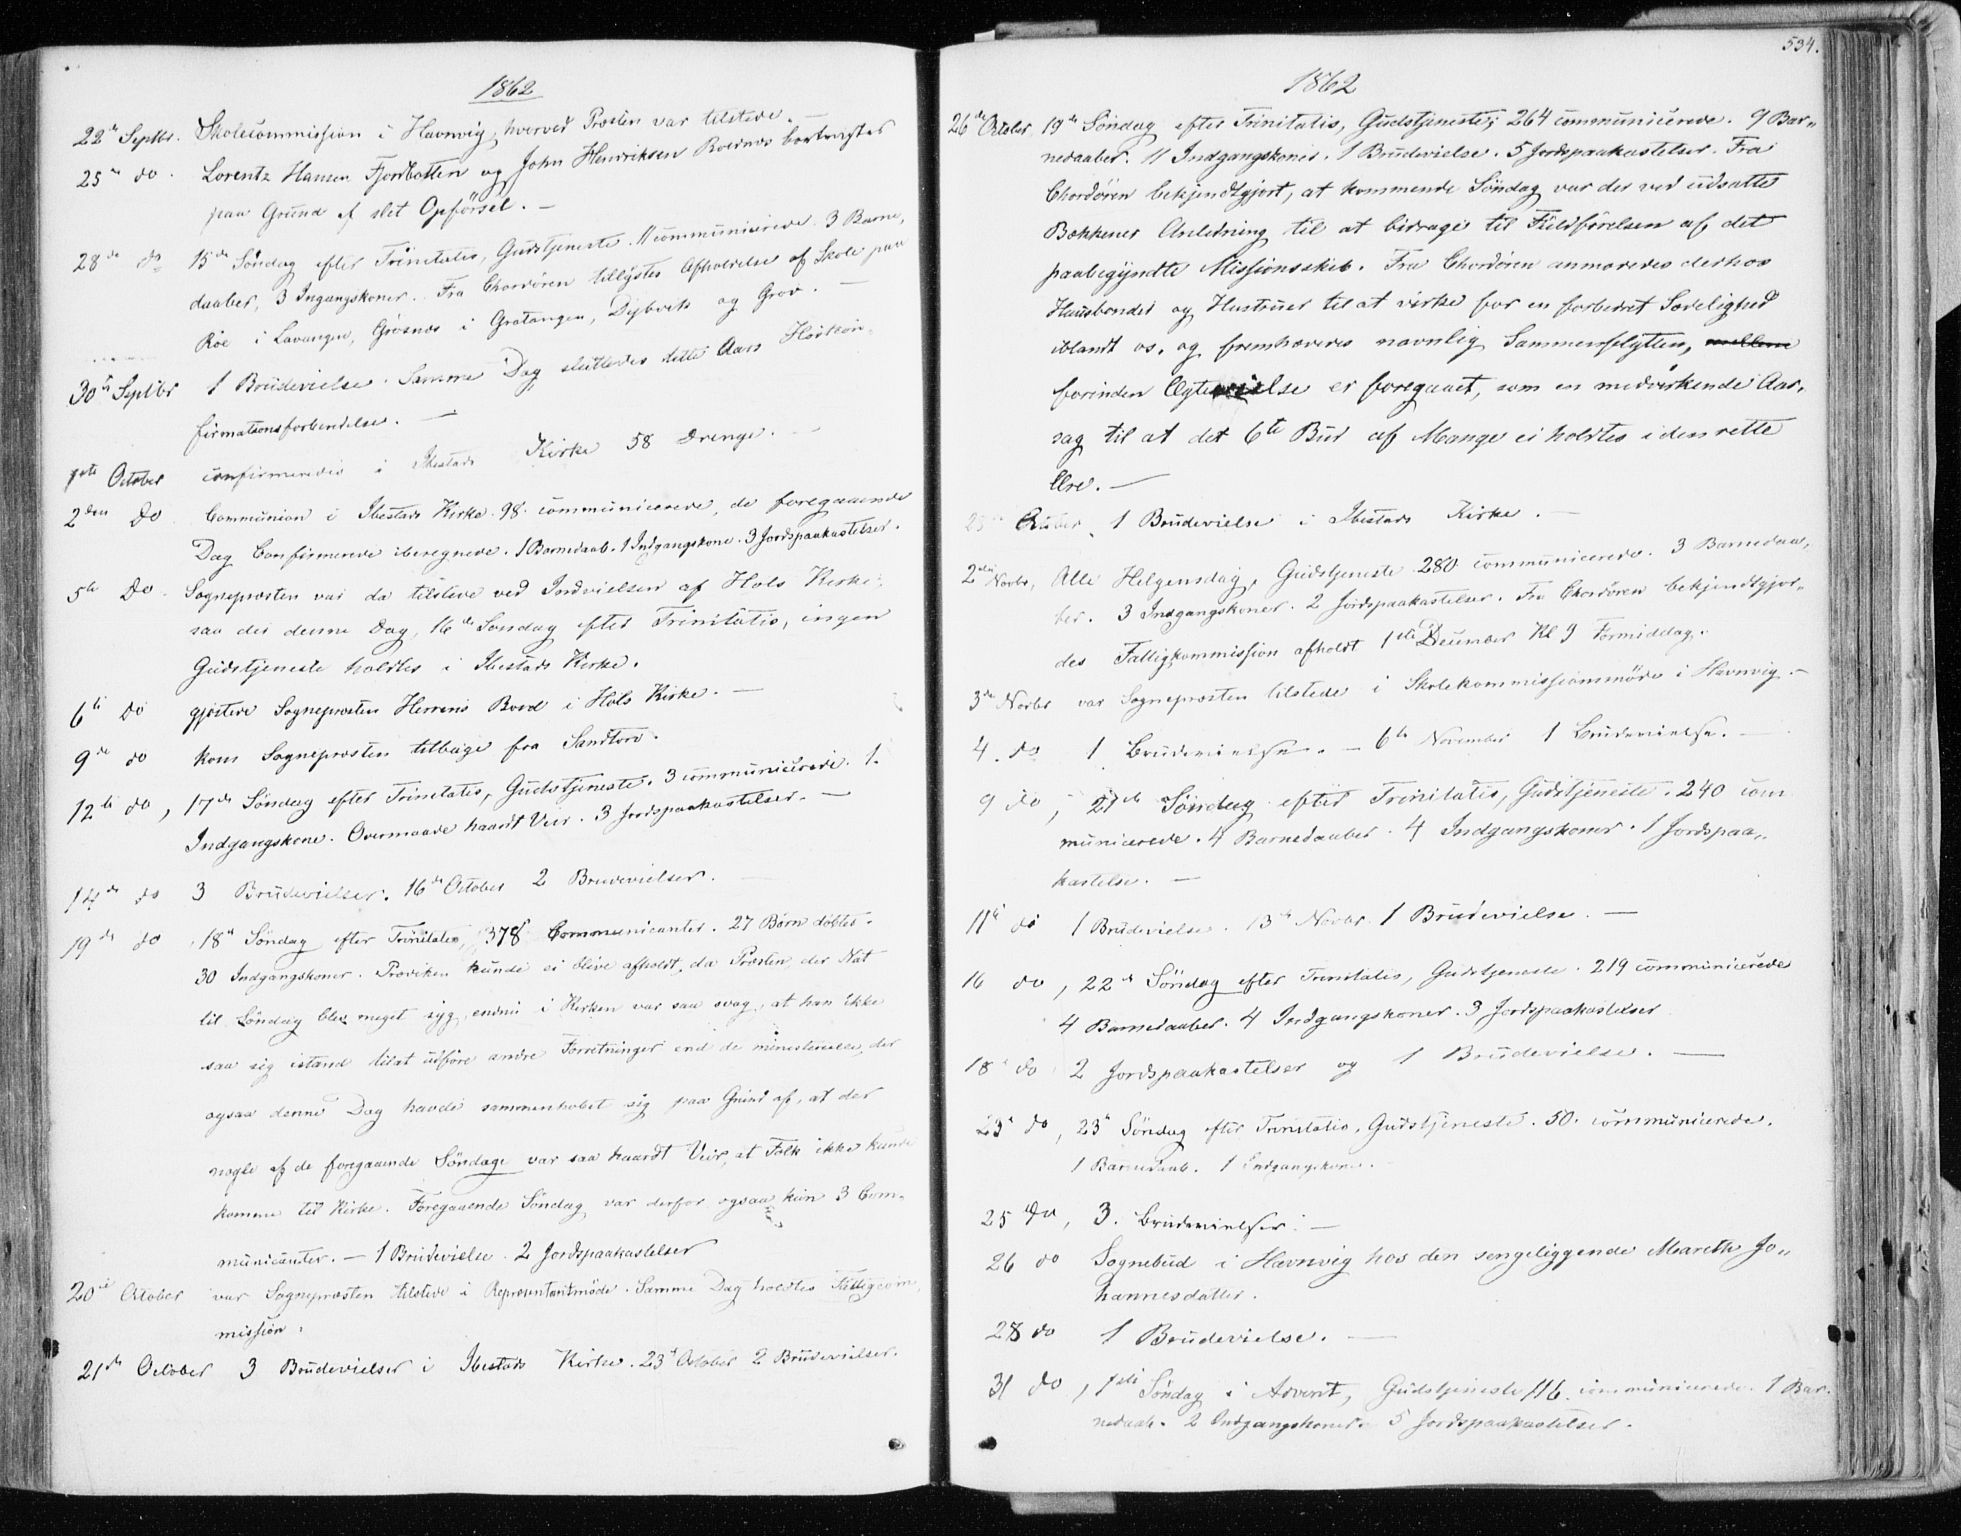 1862
22de Septbr. Skolecommission i Havnvig, hvorved Præsten var tilstede. —
25de do. Lorentz Hansen Fjordbotten og John Henriksen bortvistes
paa Grund af slet Opførsel. —
28de do 15de Søndag efter Trinitatis, Gudstjeneste. 11 communicerede. 3 Barne,
daaber, 3 Ingangskoner. Fra Chordøren tillystes Afholdelse af Skole paa
Röe i Lavangen, i Gratangen, Dybvik og Grov. —
30te Septbr 1 Brudevielse. Samme Dag sluttedes dette Aars Høstcon-
firmationsforberedelse. —
1ste October confirmeredes i Ibestads Kirke 58 Drenge. —
2den Do Communion i Ibestads Kirke. 98 communicerede, de foregaaende
Dag Confirmerede iberegnede. 1 Barnedaab. 1 Indgangskone. 3 Jordspaakastelser.
5te Do. Sognepræsten var da tilstede ved Indvielsen af Hols Kirke:
saa der denne Dag, 16de Søndag efter Trinitatis, ingen
Gudstjeneste holdtes i Ibestads Kirke.
6te Do gjæstede Sognepræsten Herrens Bord i Hols Kirke. —
9de do kom Sognepræsten tilbage fra Sandtorv.
12te do, 17de Søndag efter Trinitatis, Gudstjeneste. 3 communicerede. 1.
Indgangskone. Overmaade haardt Veir. 3 Jordspaakastelser. —
14de do 3 Brudevielser. 16de October 2 Brudevielser. —
19de do 18de Søndag efter Trinitatis, 378 Communicanter. 27 Børn døbtes.
30 Indgangskoner. Prædiken kunde ei blive afholdt, da Præsten, der Nat
til Søndag blev meget syg, endnu i Kirken var saa svag, at han ikke
saa sig istand tilat udføre andre Forretninger end de ministerielle, der
ogsaa denne Dag havde sammenhobet sig paa Grund af, at der
nogle af de foregaaende Søndage var saa haardt Veir, at Folk ikke kunde
komme til Kirke. Foregaaende Søndag var derfor ogsaa kun 3 Com-
municanter. — 1 Brudevielse. 2 Jordspaakastelser
20de October var Sognepræsten tilstede i Repræsentantmøde. Samme Dag holdtes Fattigcom-
mission.
21de October 3 Brudevielser i Ibestads Kirke. 23de October 2 Brudevielser.
534.
1862
26de October 19de Søndag efter Trinitatis, Gudstjeneste; 264 communicerede. 9 Bar-
nedaaber. 11 Indgangskoner. 1 Brudevielse. 5 Jordspaakastelser. Fra
Chordøren bekjendtgjort, at kommende Søndag var der ved udsatte
Bækkener Anledning til at bidrage til Fuldførelsen af det
paabegyndte Missionsskib. Fra Chordøren anmodedes derhos
Huusbonder og Hustruer til at virke for en forbedret Sædelighed
iblandt os, og fremhævedes navnlig Sammenflytten, mellem
forinden Ægtevielse er foregaaet, som en medvirkende Aar-
sag til at det 6te Bud af Mange ei holdtes i den rette
Ære. —
October 1 Brudevielse i Ibestads Kirke. —
2den Novbr, Alle Helgensdag, Gudstjeneste 280 communicerede. 3 Barnedaa-
ber. 3 Indgangskoner. 2 Jordspaakastelser. Fra Chordøren bekjendtgjor-
des Fattigkommission afholdt 1ste December Kl 9 Formiddag.
3de Novbr var Sognepræsten tilstede i Skolekommissionmøde i Havnvig. —
4. do 1 Brudevielse. — 6te November 1 Brudevielse. —
9 do, 21de Søndag efter Trinitatis, Gudstjeneste. 240 com
municerede. 4 Barnedaaber. 4 Indgangskoner. 1 Jordspaa-
kastelse. —
11te do 1 Brudevielse. 13de Novbr. 1 Brudevielse. —
16 do, 22de Søndag efter Trinitatis, Gudstjeneste. 219 communicerede
4 Barnedaaber. 4 Indgangskoner. 3 Jordspaakastelser
18de do 2 Jordspaakastelser og 1 Brudevielse. —
23de do, 23de Søndag efter Trinitatis, Gudstjeneste. 50. communicerede.
1 Barnedaab. 1 Indgangskone. —
25 do, 3. Brudevielser. —
26 do Sognebud i Havnvig hos den sengeliggende Mareth Jo-
hannesdatter.
28 do 1 Brudevielse. —
31 do, 1ste Søndag i Advent, Gudstjeneste 116 communicerede. 1 Bar-
nedaab. 2 Indgangskoner. 5 Jordspaakastelser.